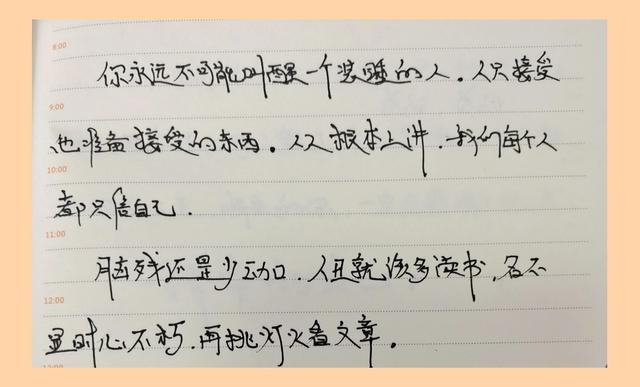 8:00
你永远不可能叫醒一个装睡的人。人只接受
9:00
他准备接受的东西。从根本上讲，我们每个人
10:00
都只信自己。
11:00
脑残还是少动口，人丑就该多读书，名不
12:00
显时心不朽，再挑灯火看文章。